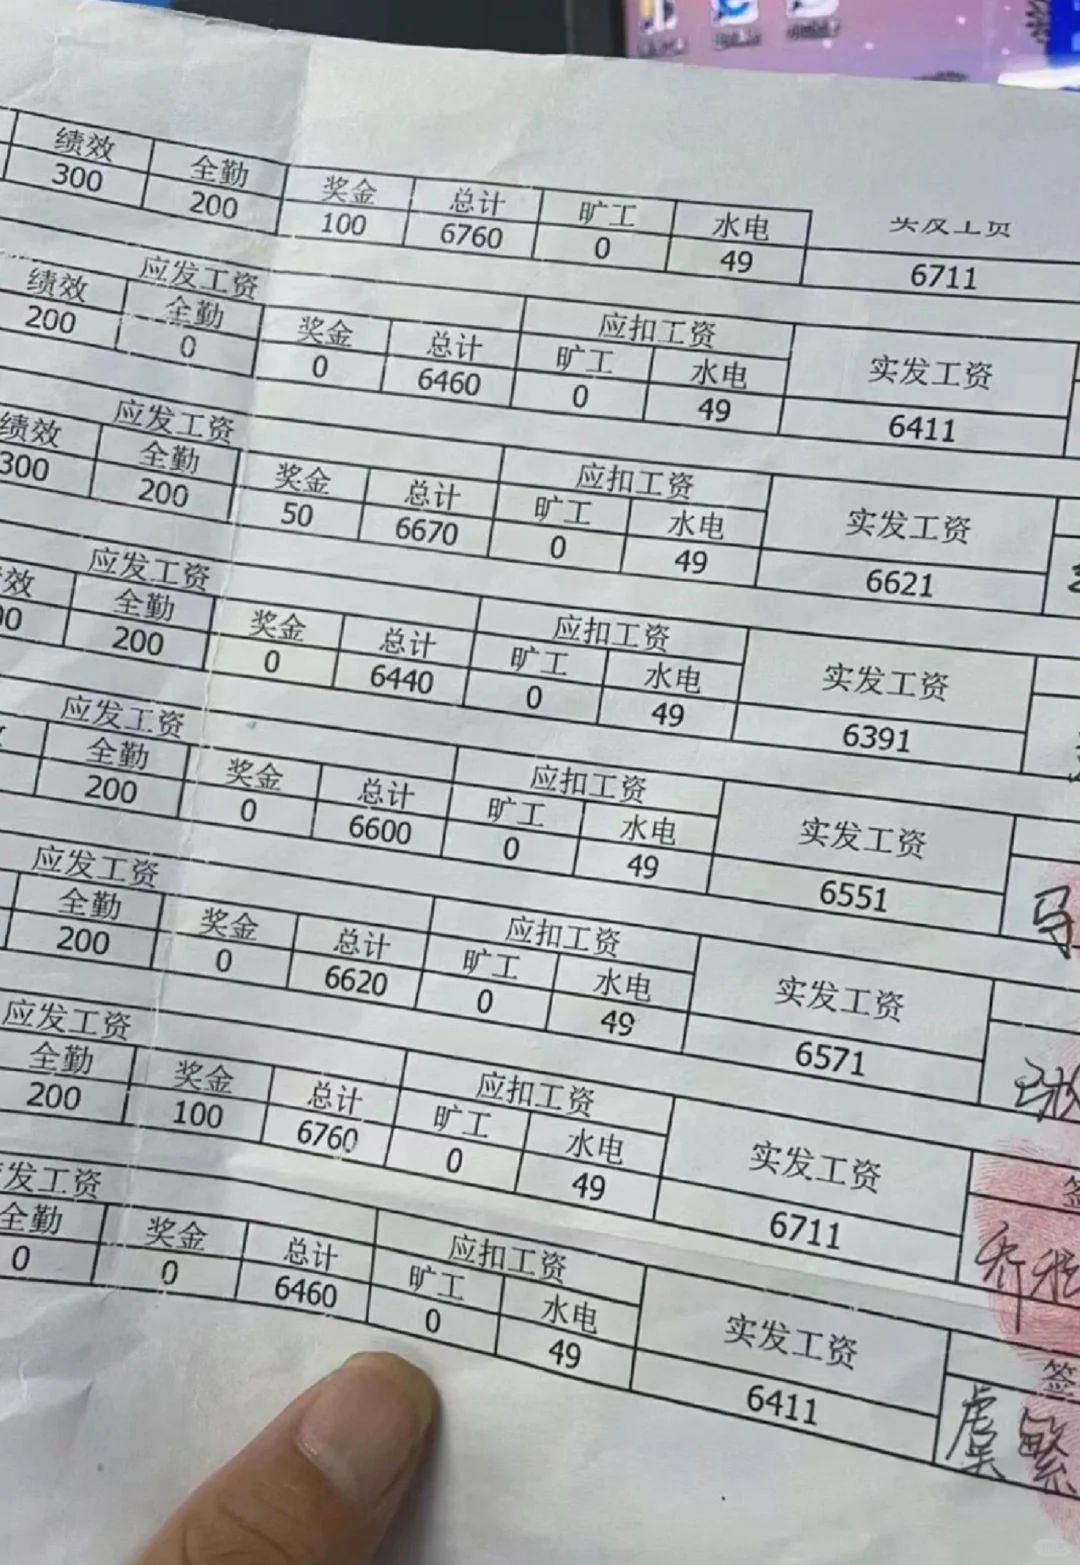 绩效 全勤 奖金 总计 旷工 水电
300 200 100 6760 0 49 6711
应发工资 应扣工资 实发工资
绩效 全勤 奖金 总计 旷工 水电
200 0 0 6460 0 49 6411
应发工资 应扣工资 实发工资
绩效 全勤 奖金 总计 旷工 水电
300 200 50 6670 0 49 6621
应发工资 应扣工资 实发工资
效 全勤 奖金 总计 旷工 水电
00 200 0 6440 0 49 6391
应发工资 应扣工资 实发工资
全勤 奖金 总计 旷工 水电
200 0 6600 0 49 6551
马
应发工资 应扣工资 实发工资
全勤 奖金 总计 旷工 水电
200 0 6620 0 49 6571
应发工资 应扣工资 实发工资 签
全勤 奖金 总计 旷工 水电
200 100 6760 0 49 6711
乔
发工资 应扣工资 实发工资 签
全勤 奖金 总计 旷工 水电
0 0 6460 0 49 6411
虞繁